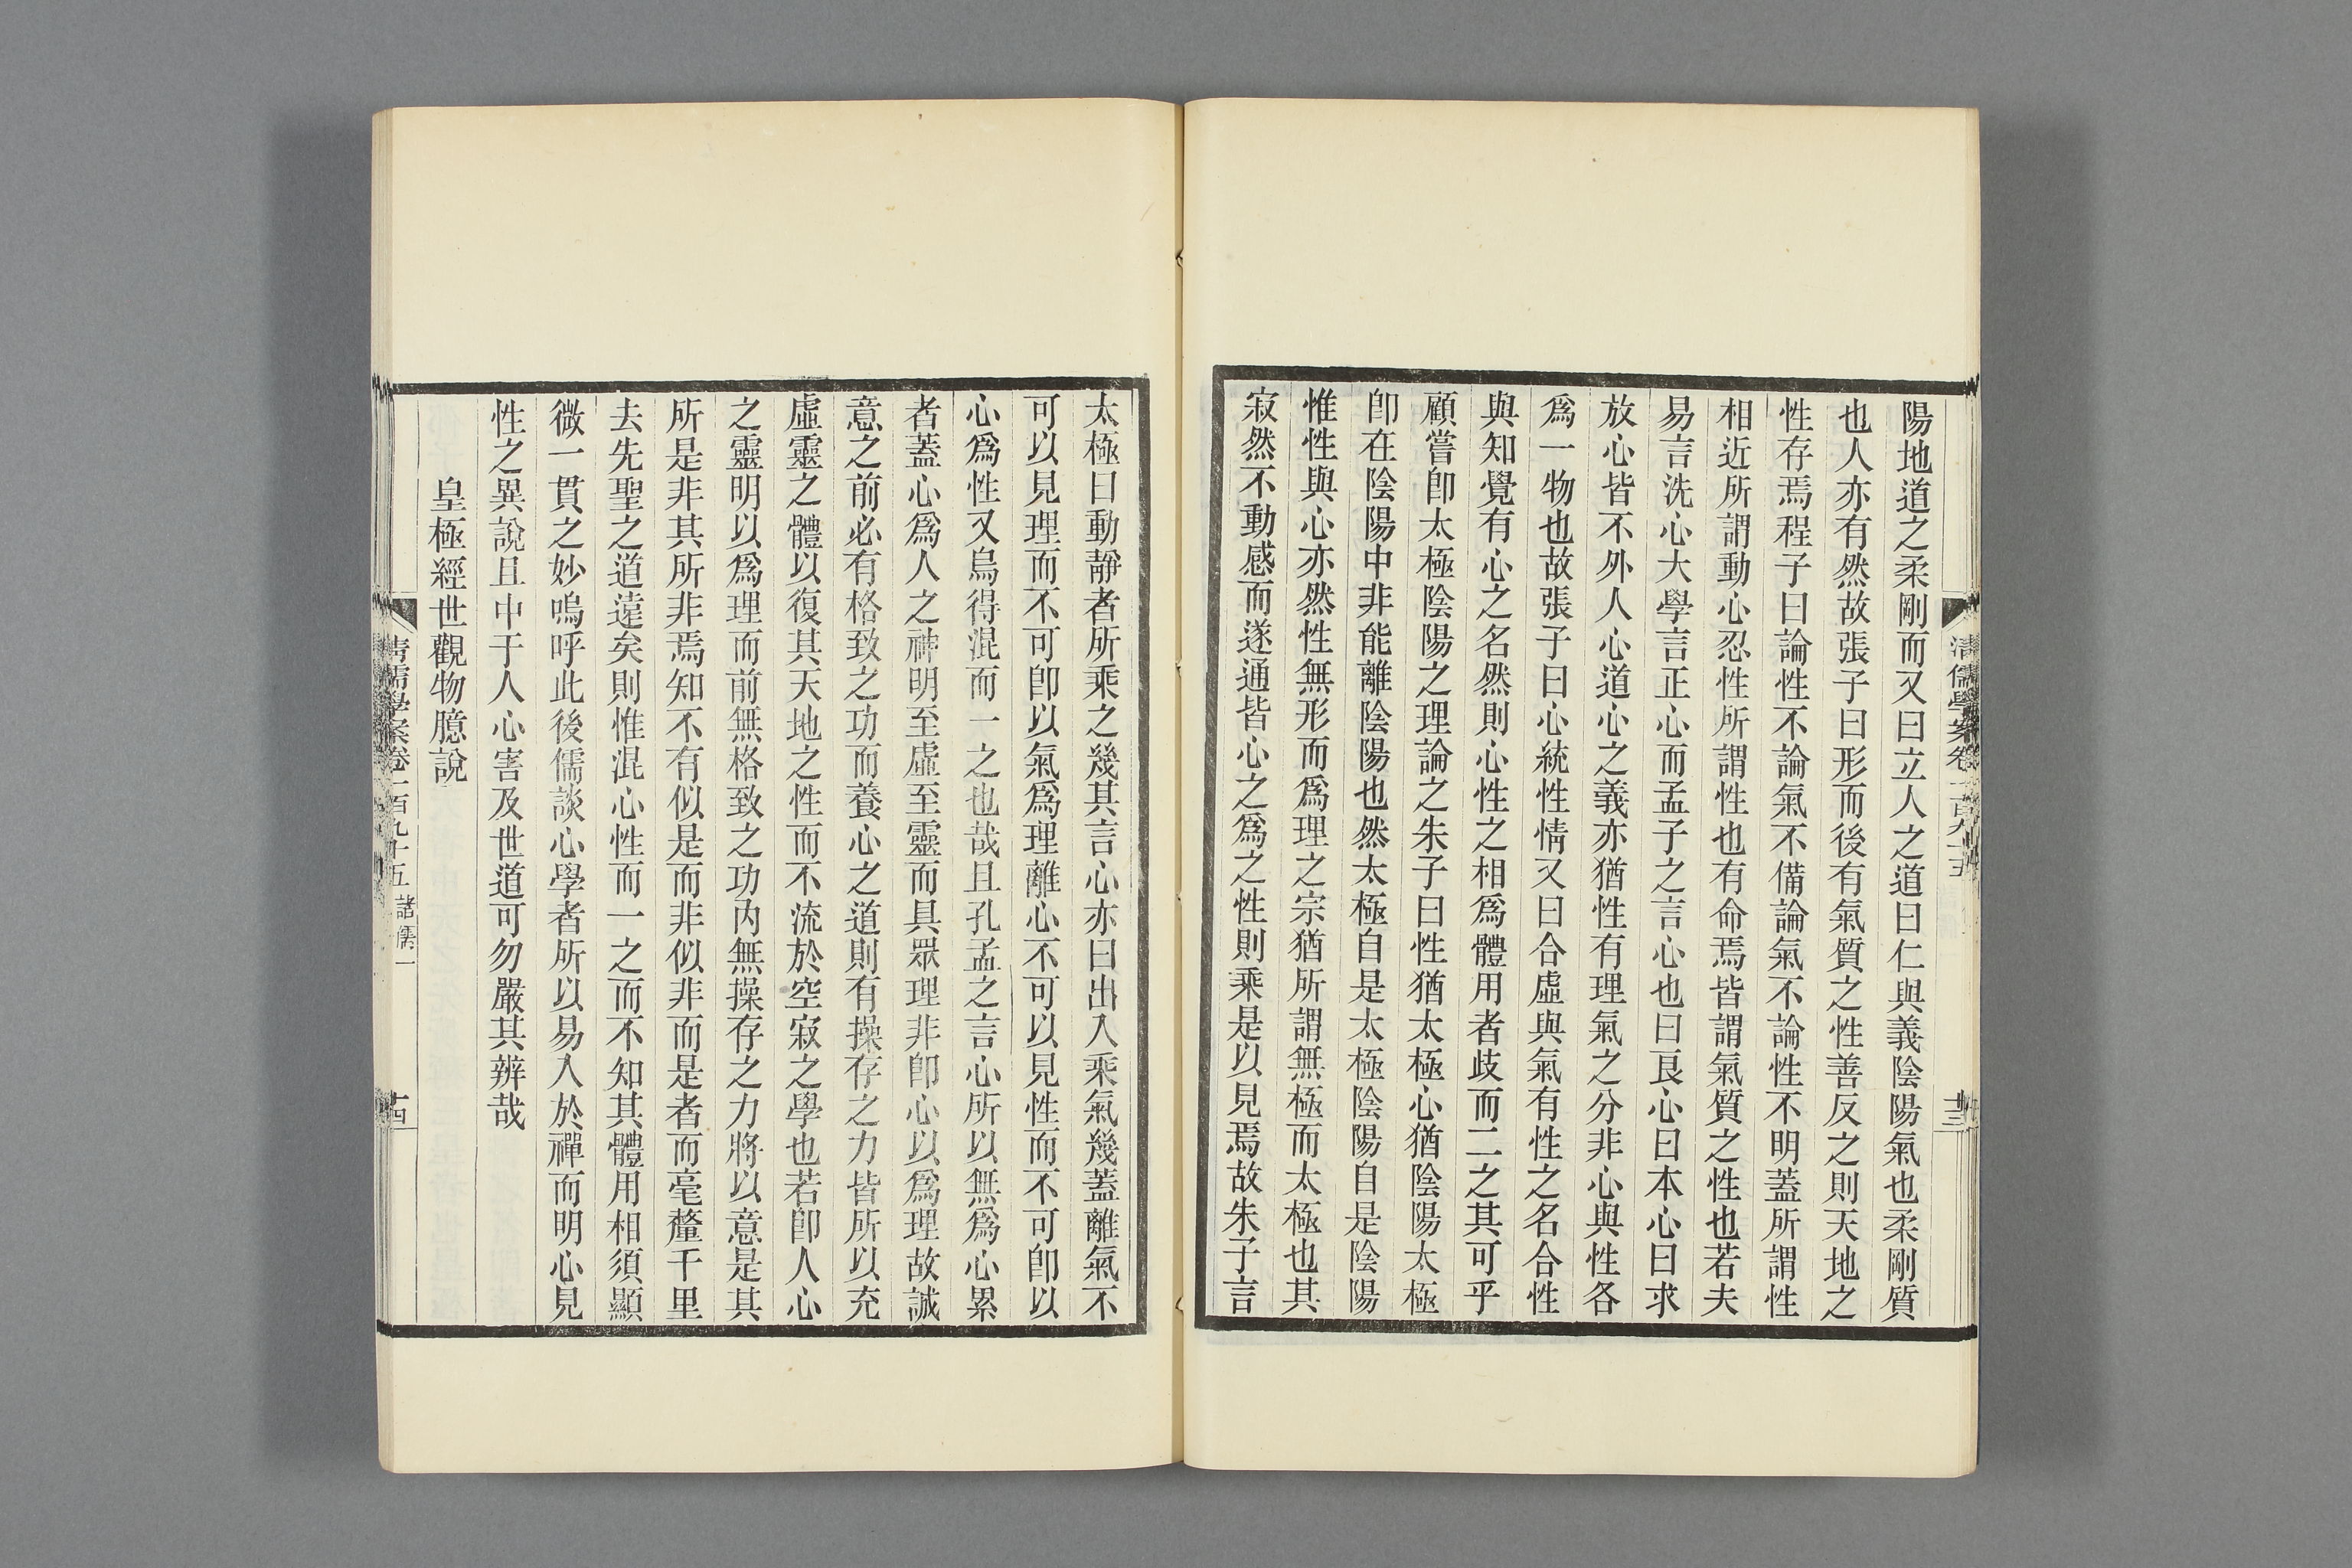 清儒學案卷一百九十五
十三
陽地道之柔剛而又曰立人之道曰仁與義陰陽氣也柔剛質
也人亦有然故張子曰形而後有氣質之性善反之則天地之
性存焉程子曰論性不論氣不備論氣不論性不明蓋所謂性
相近所謂動心忍性所謂性也有命焉皆謂氣質之性也若夫
易言洗心大學言正心而孟子之言心也曰良心曰本心曰求
放心皆不外人心道心之義亦猶性有理氣之分非心與性各
爲一物也故張子曰心統性情又曰合虛與氣有性之名合性
與知覺有心之名然則心性之相爲體用者歧而二之其可乎
顧嘗卽太極陰陽之理論之朱子曰性猶太極心猶陰陽太極
卽在陰陽中非能離陰陽也然太極自是太極陰陽自是陰陽
惟性與心亦然性無形而爲理之宗猶所謂無極而太極也其
寂然不動感而遂通皆心之爲之性則乘是以見焉故朱子言
太極曰動靜者所乘之幾其言心亦曰出入乘氣幾蓋離氣不
可以見理而不可卽以氣爲理離心不可以見性而不可卽以
心爲性又烏得混而一之也哉且孔孟之言心所以無爲心累
者蓋心爲人之神明至虛至靈而具眾理非卽心以爲理故誠
意之前必有格致之功而養心之道則有操存之力皆所以充
虛靈之體以復其天地之性而不流於空寂之學也若卽人心
之靈明以爲理而前無格致之功內無操存之力將以意是其
所是非其所非焉知不有似是而非似非而是者而毫釐千里
去先聖之道遠矣則惟混心性而一之而不知其體用相須顯
微一貫之妙嗚呼此後儒談心學者所以易入於禪而明心見
性之異說且中于人心害及世道可勿嚴其辨哉
皇極經世觀物臆說
清儒學案卷一百九十五 諸儒一
十四